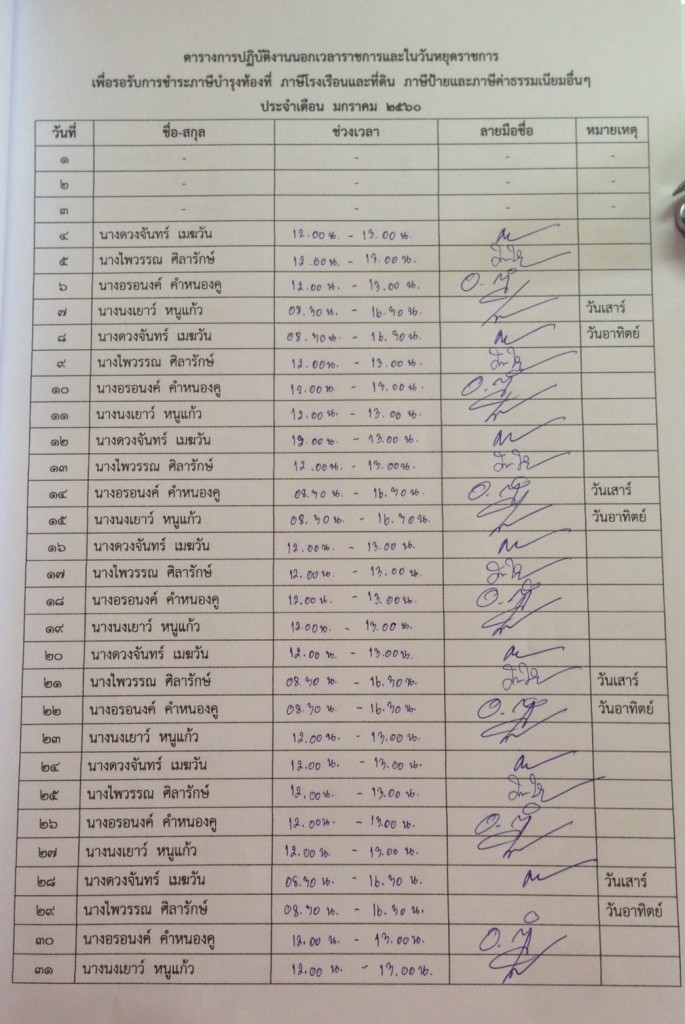 ตารางการปฏิบัติงานนอกเวลาราชการและในวันหยุดราชการ
เพื่อรอรับการชำระภาษีบำรุงท้องที่ ภาษีโรงเรือนและที่ดิน ภาษีป้ายและภาษีค่าธรรมเนียมอื่นๆ
ประจำเดือน มกราคม ๒๕๖๐
วันที่ ชื่อ-สกุล ช่วงเวลา ลายมือชื่อ หมายเหตุ
๑ - - - -
๒ - - - -
๓ - - - -
๔ นางดวงจันทร์ เมฆวัน 12.00 น. - 13.00 น.
๕ นางไพวรรณ ศิลารักษ์ 12.00น. - 13.00 น.
๖ นางอรอนงค์ คำหนองคู 12.00น. - 13.00 น.
๗ นางนงเยาว์ หนูแก้ว 08.30 น. - 16.30 น. วันเสาร์
๘ นางดวงจันทร์ เมฆวัน 08.30 น. - 16.30 น. วันอาทิตย์
๙ นางไพวรรณ ศิลารักษ์ 12.00น. - 13.00 น.
๑๐ นางอรอนงค์ คำหนองคู 12.00น. - 13.00 น.
๑๑ นางนงเยาว์ หนูแก้ว 12.00น. - 13.00 น.
๑๒ นางดวงจันทร์ เมฆวัน 12.00น. - 13.00น.
๑๓ นางไพวรรณ ศิลารักษ์ 12.00น. - 13.00น.
๑๔ นางอรอนงค์ คำหนองคู 08.30 น. - 16.30 น. วันเสาร์
๑๕ นางนงเยาว์ หนูแก้ว 08.30 น. - 16.30 น. วันอาทิตย์
๑๖ นางดวงจันทร์ เมฆวัน 12.00น. - 13.00 น.
๑๗ นางไพวรรณ ศิลารักษ์ 12.00น. - 13.00 น.
๑๘ นางอรอนงค์ คำหนองคู 12.00น. - 13.00น.
๑๙ นางนงเยาว์ หนูแก้ว 12.00น. - 13.00น.
๒๐ นางดวงจันทร์ เมฆวัน 12.00 น. - 13.00น.
๒๑ นางไพวรรณ ศิลารักษ์ 08.30 น. - 16.30 น. วันเสาร์
๒๒ นางอรอนงค์ คำหนองคู 08.30 น. - 16.30น. วันอาทิตย์
๒๓ นางนงเยาว์ หนูแก้ว 12.00น. - 13.00น.
๒๔ นางดวงจันทร์ เมฆวัน 12.00 น. - 13.00น.
๒๕ นางไพวรรณ ศิลารักษ์ 12.00น. - 13.00น.
๒๖ นางอรอนงค์ คำหนองคู 12.00น. - 13.00น.
๒๗ นางนงเยาว์ หนูแก้ว 12.00 น. - 13.00 น.
๒๘ นางดวงจันทร์ เมฆวัน 08.30 น. - 16.30 น. วันเสาร์
๒๙ นางไพวรรณ ศิลารักษ์ 08.30 น. - 16.30 น. วันอาทิตย์
๓๐ นางอรอนงค์ คำหนองคู 12.00 น. - 13.00น.
๓๑ นางนงเยาว์ หนูแก้ว 12.00 น. - 13.00น.